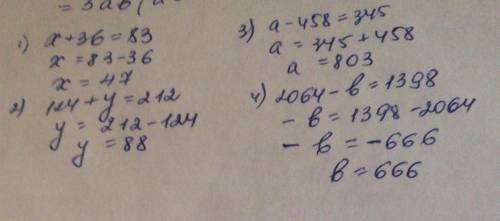 = 3ab(a
1) x+36=83
x=83-36
x=47
2) 124+y=212
y=212-124
y=88
3) a-458=345
a=345+458
a=803
4) 2064-b=1398
-b=1398-2064
-b=-666
b=666